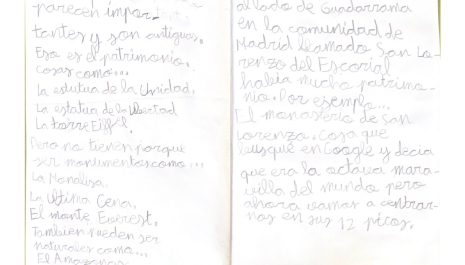 parecen impor-
tantes y son antiguos.
Eso es el patrimonio.
cosas como...
La estutua de la Unidad,
La estatua de la libertad
La torre Eiffel.
Pero no tienen porque
ser monumentos como...
La Monalisa.
La última Cena.
El monte Everest.
Tambien pueden ser
naturales como...
El Amazonas
al lado de Guadarrama
en la comunidad de
Madrid llamado San Lo-
renzo del Escorial
habia mucho patrimo-
nio. Por ejemplo...
El monasterio de San
Lorenzo. Cosa que
busque en Google y decia
que era la octava mara-
villa del mundo pero
ahora vamos a centrar-
nos en sus 12 ptcos.